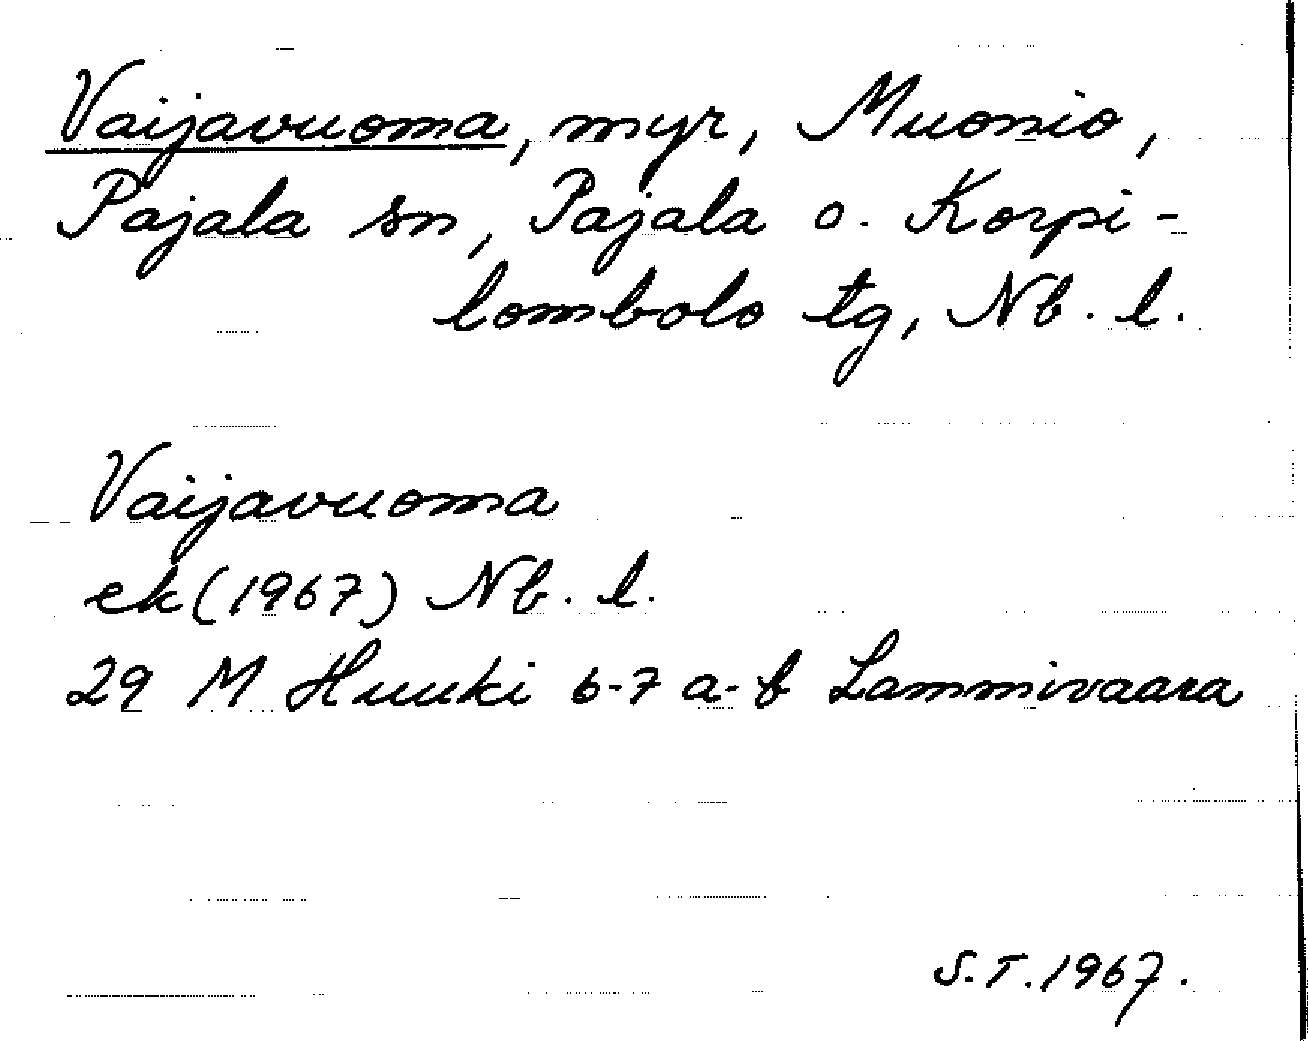 Vaijavuoma, myr, Muonio,
Pajala sn, Pajala o. Korpi-
lombolo tg, Nb. l.
Vaijavuoma
ek (1967) Nb. l.
29 M Huuki 6-7 a-b Lammivaara
S.T. 1967.